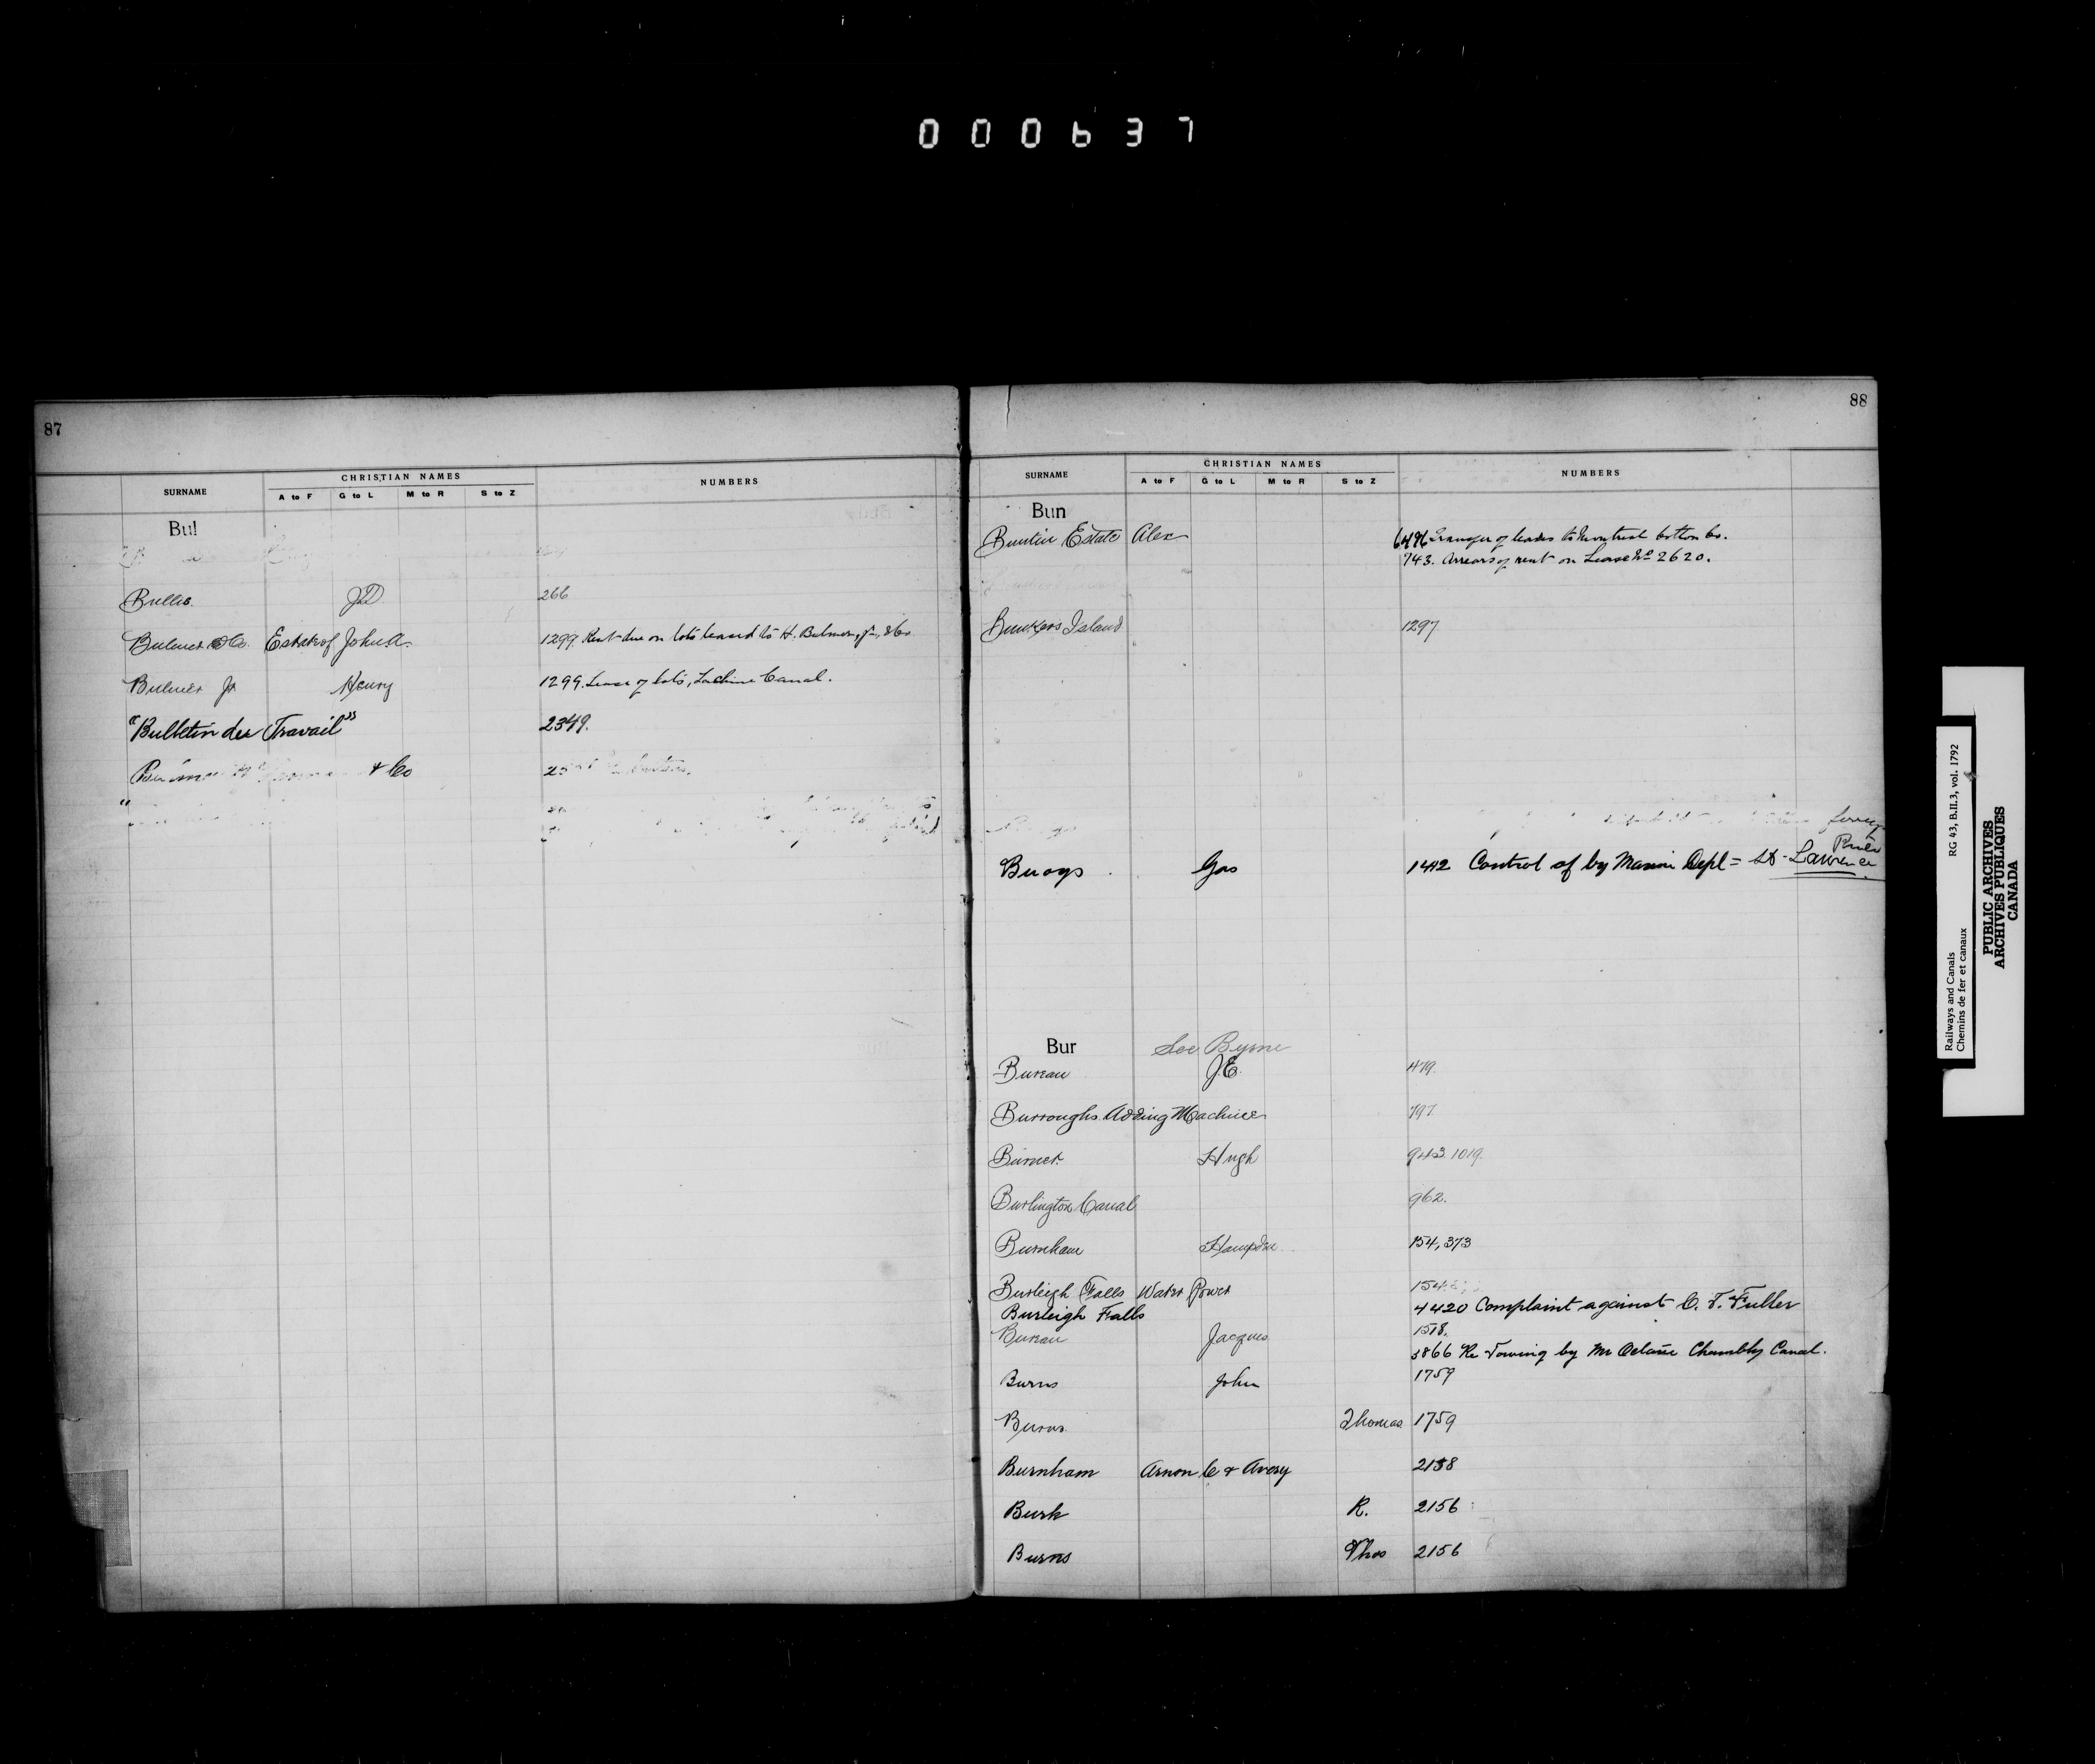 000637
87
SURNAME CHRISTIAN NAMES NUMBERS
A to F G to L M to R S to Z
Bul
Bullis. J.D. 266
Bulmer & Co. Estate of John A. 1299. Rent due on lots leased to H. Bulmer, Jr., & Co
Bulmer Jr Henry 1299. Lease of lots, Lachine Canal.
"Bulletin des Travail" 2349.
& Co
88
SURNAME CHRISTIAN NAMES NUMBERS
A to F G to L M to R S to Z
Bun
Buntin Estate Alex 6496 Transfer of leases to Montreal Cotton Co.
743. Arrears of rent on Lease No 2620.
Bunkers Island 1297
ferry
Buoys Gas 1412 Control of by Marine Dept = St. Lawrence River
Bur See Byrne
Bureau J.E. 479.
Burroughs Adding Machine 797
Burnet Hugh 943. 1019.
Burlington Canal 962.
Burnham Hampden 154, 373
Burleigh Falls Water Power 154
Burleigh Falls 4420 Complaint against C. T. Fuller
Bureau Jacques 1518.
3866 Re Towing by Mr Chambly Canal.
Burns John 1759
Burns Thomas 1759
Burnham Arnon C & Avery 2138
Burk R. 2156
Burns Thos 2156
Railways and Canals RG 43, B.II.3, vol. 1792
Chemins de fer et canaux
PUBLIC ARCHIVES
ARCHIVES PUBLIQUES
CANADA